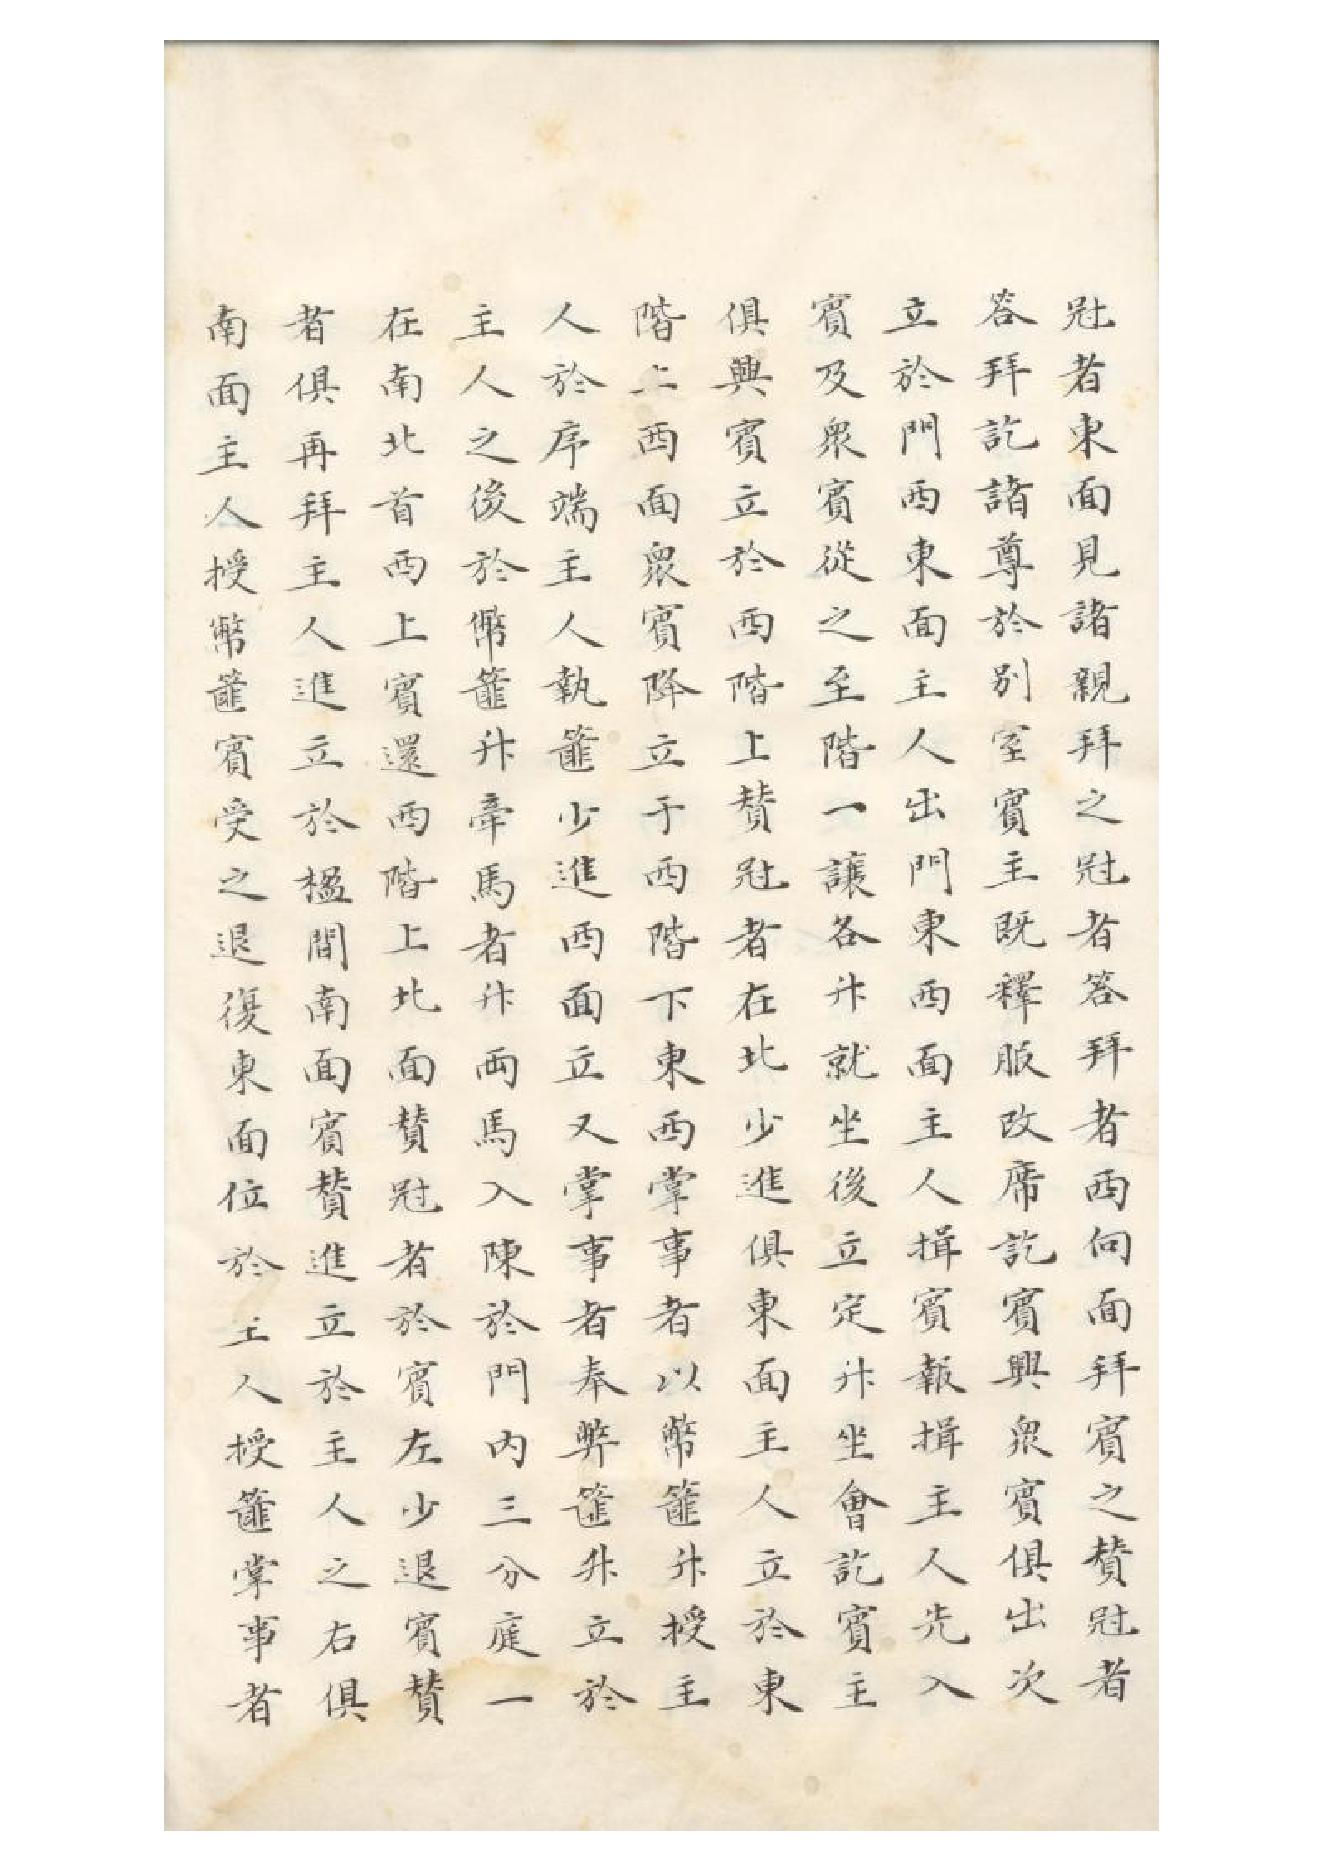 冠者東面見諸親拜之冠者答拜者西向面拜賓之賛冠者
答拜訖諸尊於別室賓主既釋服改席訖賓興衆賓俱出次
立於門西東面主人出門東西面主人揖賓報揖主人先入
賓及衆賓從之至階一讓各升就坐後立定升坐會訖賓主
俱興賓立於西階上賛冠者在北少進俱東面主人立於東
階上西面衆賓降立于西階下東西掌事者以幣篚升授主
人於序端主人執篚少進西面立又掌事者奉弊篚升立於
主人之後於幣篚升牽馬者升兩馬入陳於門內三分庭一
在南北首西上賓還西階上北面賛冠者於賓左少退賓賛
者俱再拜主人進立於楹間南面賓賛進立於主人之右俱
南面主人授幣篚賓受之退復東面位於主人授篚掌事者